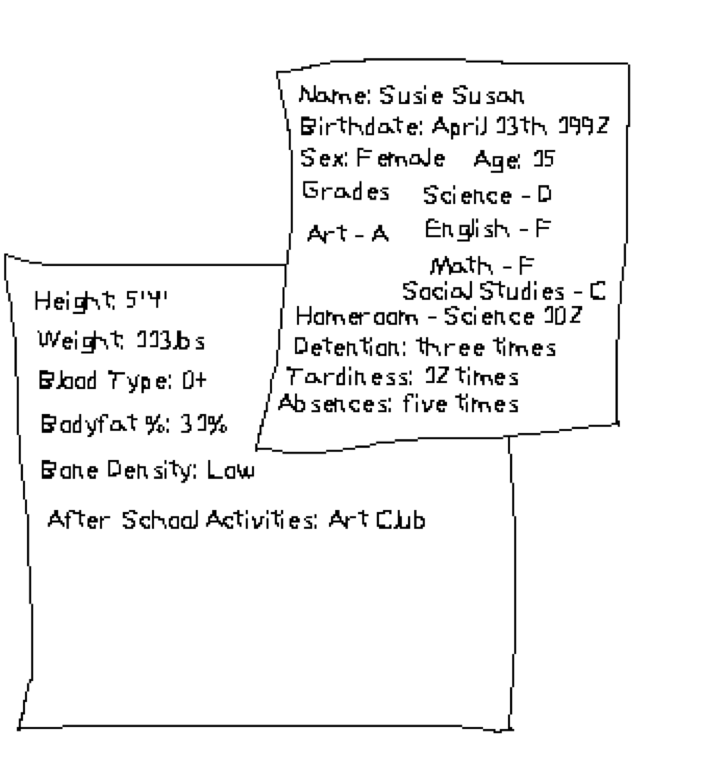 Name: Susie Susan
Birthdate: April 13th 1992
Sex: Female Age: 15
Grades Science - D
Art - A English - F
Math - F
Social Studies - C
Homeroom - Science 102
Detention: three times
Tardiness: 12 times
Absences: five times
Height: 5'4'
Weight: 113lbs
Blood Type: O+
Bodyfat %: 31%
Bone Density: Low
After School Activities: Art Club